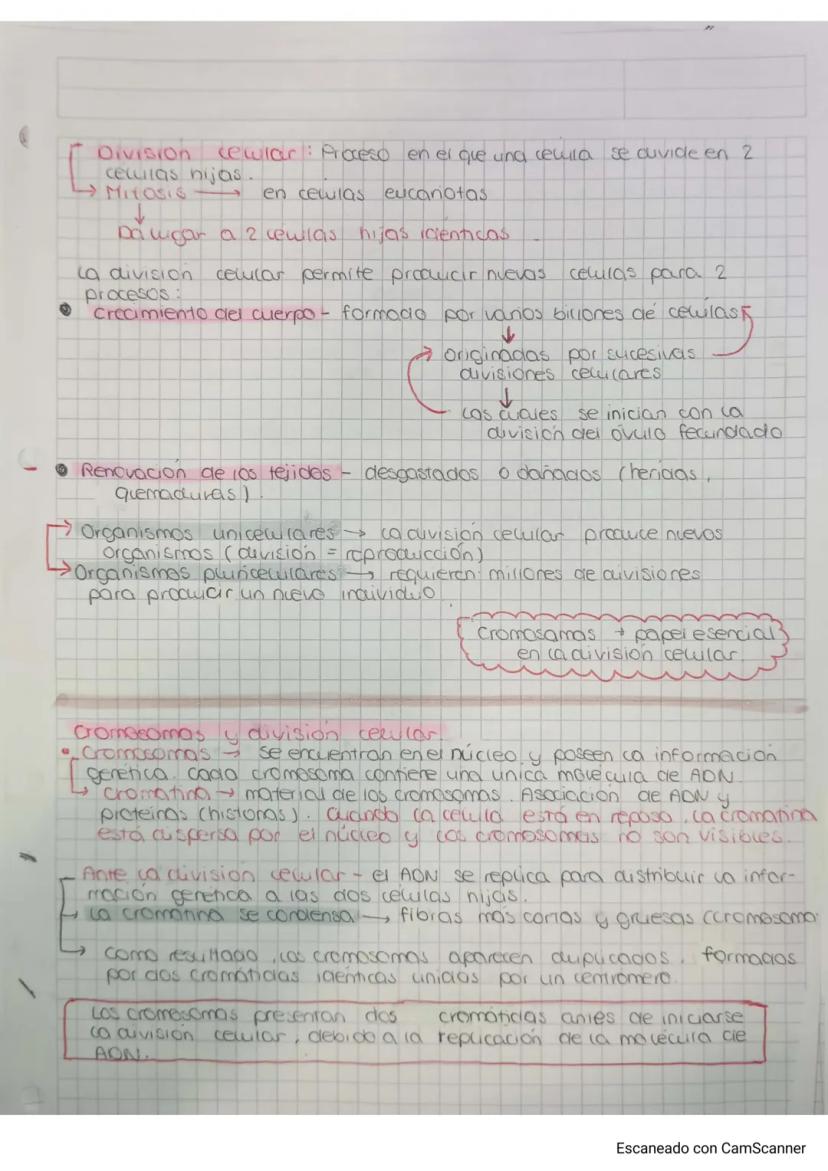 División celular: Proceso en el que una célula se divide en 2
células hijas.
→ Mitosis → en celulas eucariotas
↓
Da lugar a 2 células hijas idénticas.
La división celular permite producir nuevas celulas para 2
procesos:
• Crecimiento del cuerpo - formado por varios billones de celulas
↓
originadas por sucesivas
divisiones celulares
↓
Las cuales se inician con la
división del óvulo fecundado
- • Renovación de los tejidos - desgastados o dañados (heridas,
quemaduras).
→ Organismos unicelulares → la división celular produce nuevos
organismos (división = reproducción)
→ Organismos pluricelulares → requieren millones de divisiones
para producir un nuevo individuo.
Cromosomas → papel esencial
en la división celular.
Cromosomas y división celular
• Cromosomas → se encuentran en el núcleo y poseen la información
genética. Cada cromosoma contiene una única molécula de ADN.
→ Cromatina → material de los cromosomas. Asociación de ADN y
proteínas (histonas). Cuando la celula está en reposo, la cromatina
está dispersa por el núcleo y los cromosomas no son visibles.
Ante la división celular - el ADN se replica para distribuir la infor-
mación genética a las dos células hijas.
→ La cromatina se condensa → fibras más cortas y gruesas (cromosoma
→ Como resultado, los cromosomas aparecen duplicados, formados
por dos cromátidas idénticas unidas por un centrómero.
Los cromosomas presentan dos cromátidas antes de iniciarse
la división celular, debido a la replicación de la molécula de
ADN.
Escaneado con CamScanner